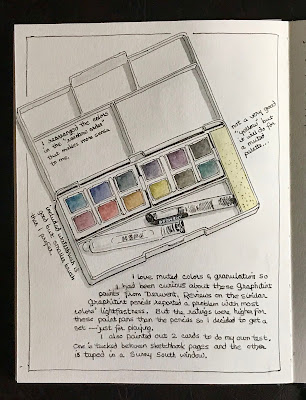 I rearranged the colors
in the "rainbow order"
that makes more sense
to me.
not a very good
"yellow" but
it will do for
a muted
palette...
included waterbrush is
good but smaller brush
that I prefer.
I love muted colors & granulation so
I had been curious about these Graphitint
paints from Derwent. Reviews on the similar
Graphitint pencils reported a problem with most
colors' lightfastness. But the ratings were higher for
these paint pans than the pencils so I decided to get a
set — just for playing.
I also painted out 2 cards to do my own test.
One is tucked between sketchbook pages and the other
is taped in a sunny South window.